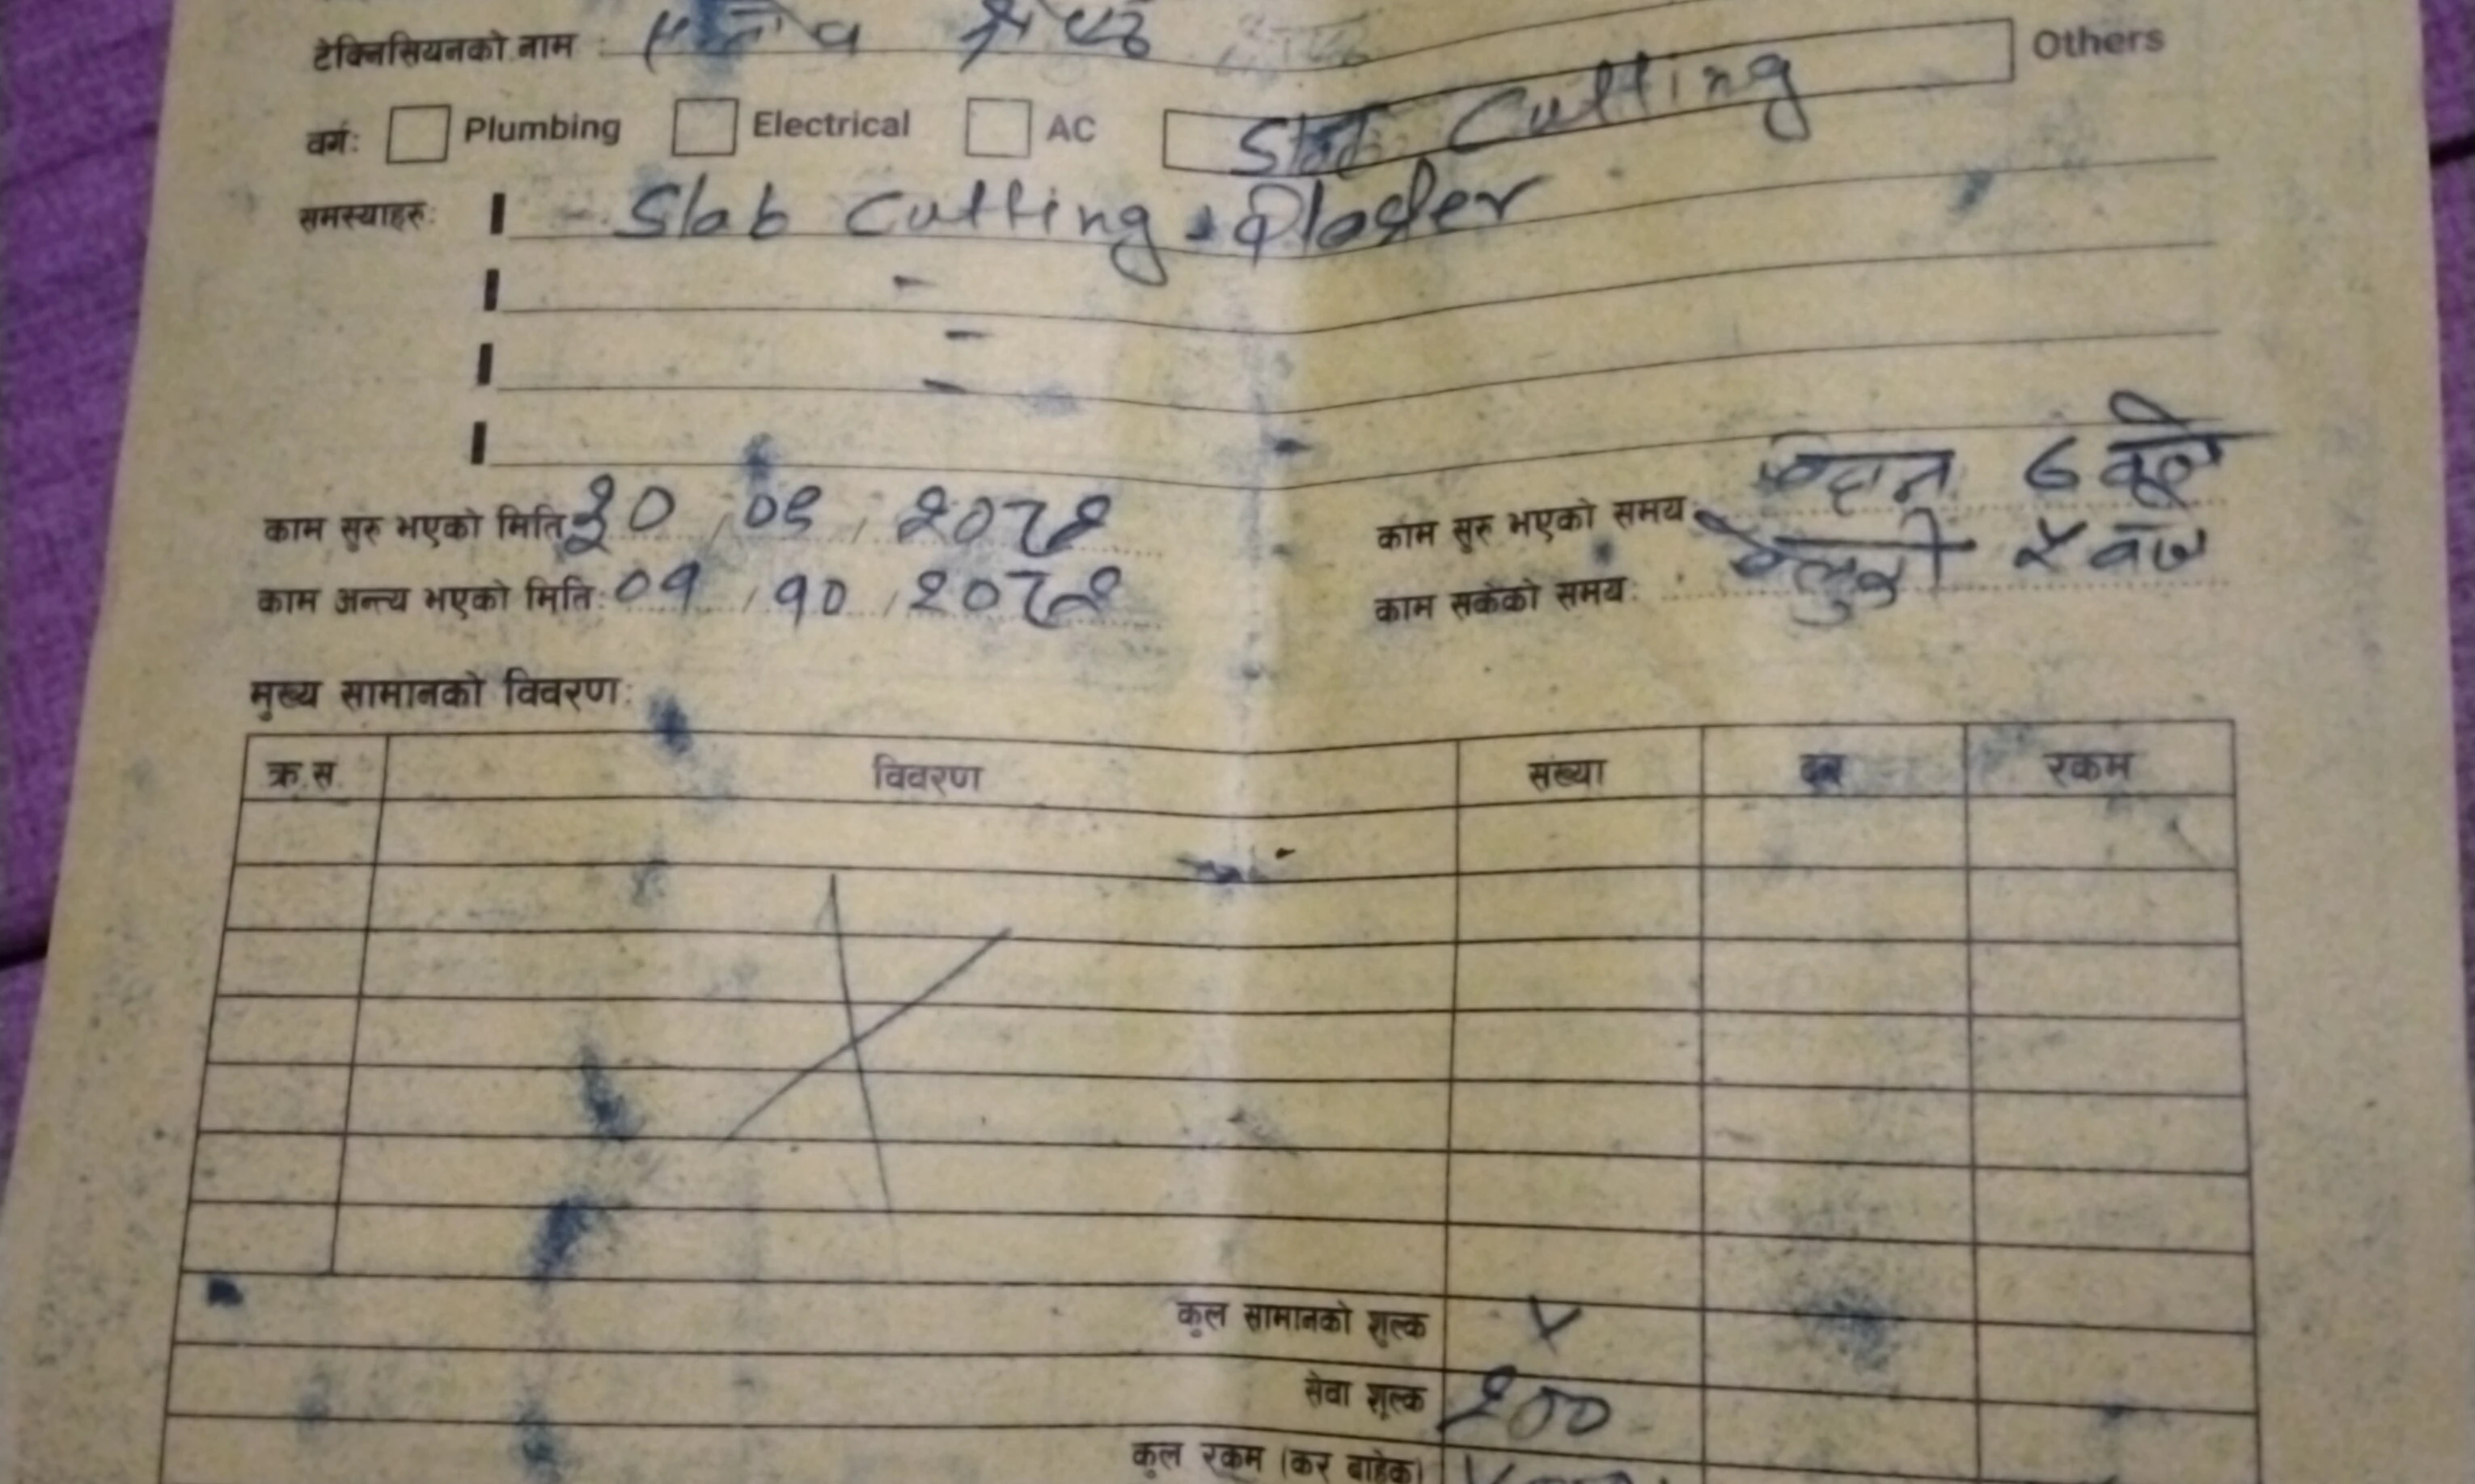 टेक्निसियनको नाम :
वर्ग: Plumbing Electrical AC Slab Cutting Others
समस्याहरु: - Slab Cutting & Plaster
काम सुरु भएको मिति: ३० / ०९ / २०७८
काम सुरु भएको समय: विहान
काम अन्त्य भएको मिति: ०१ / १० / २०७८
काम सकेको समय: बेलुकी ५ बजे
मुख्य सामानको विवरण:
क्र.स. विवरण संख्या दर रकम
कुल सामानको शुल्क X
सेवा शुल्क
कुल रकम (कर बाहेक)